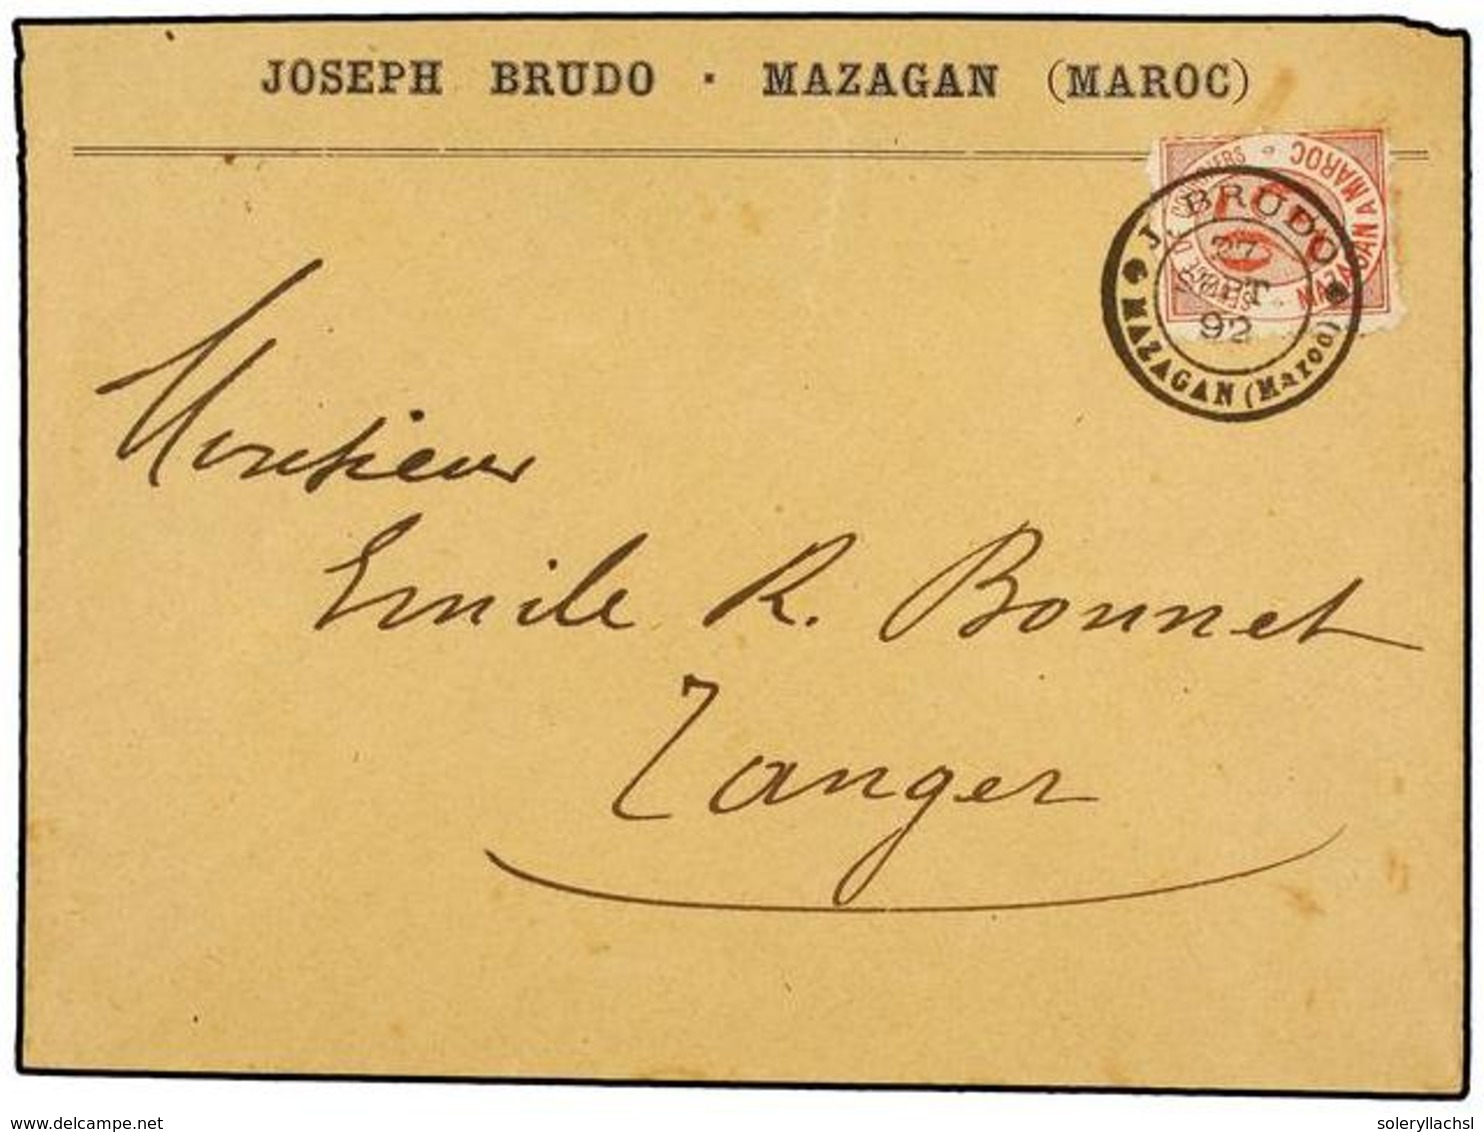 JOSEPH BRUDO · MAZAGAN (MAROC)
MAZAGAN A MAROC
J. BRUDO
27
SEPT
92
MAZAGAN (Maroc)
Monsieur
Emile R. Bonnet
Tanger
www.delcampe.net
soleryllachsl